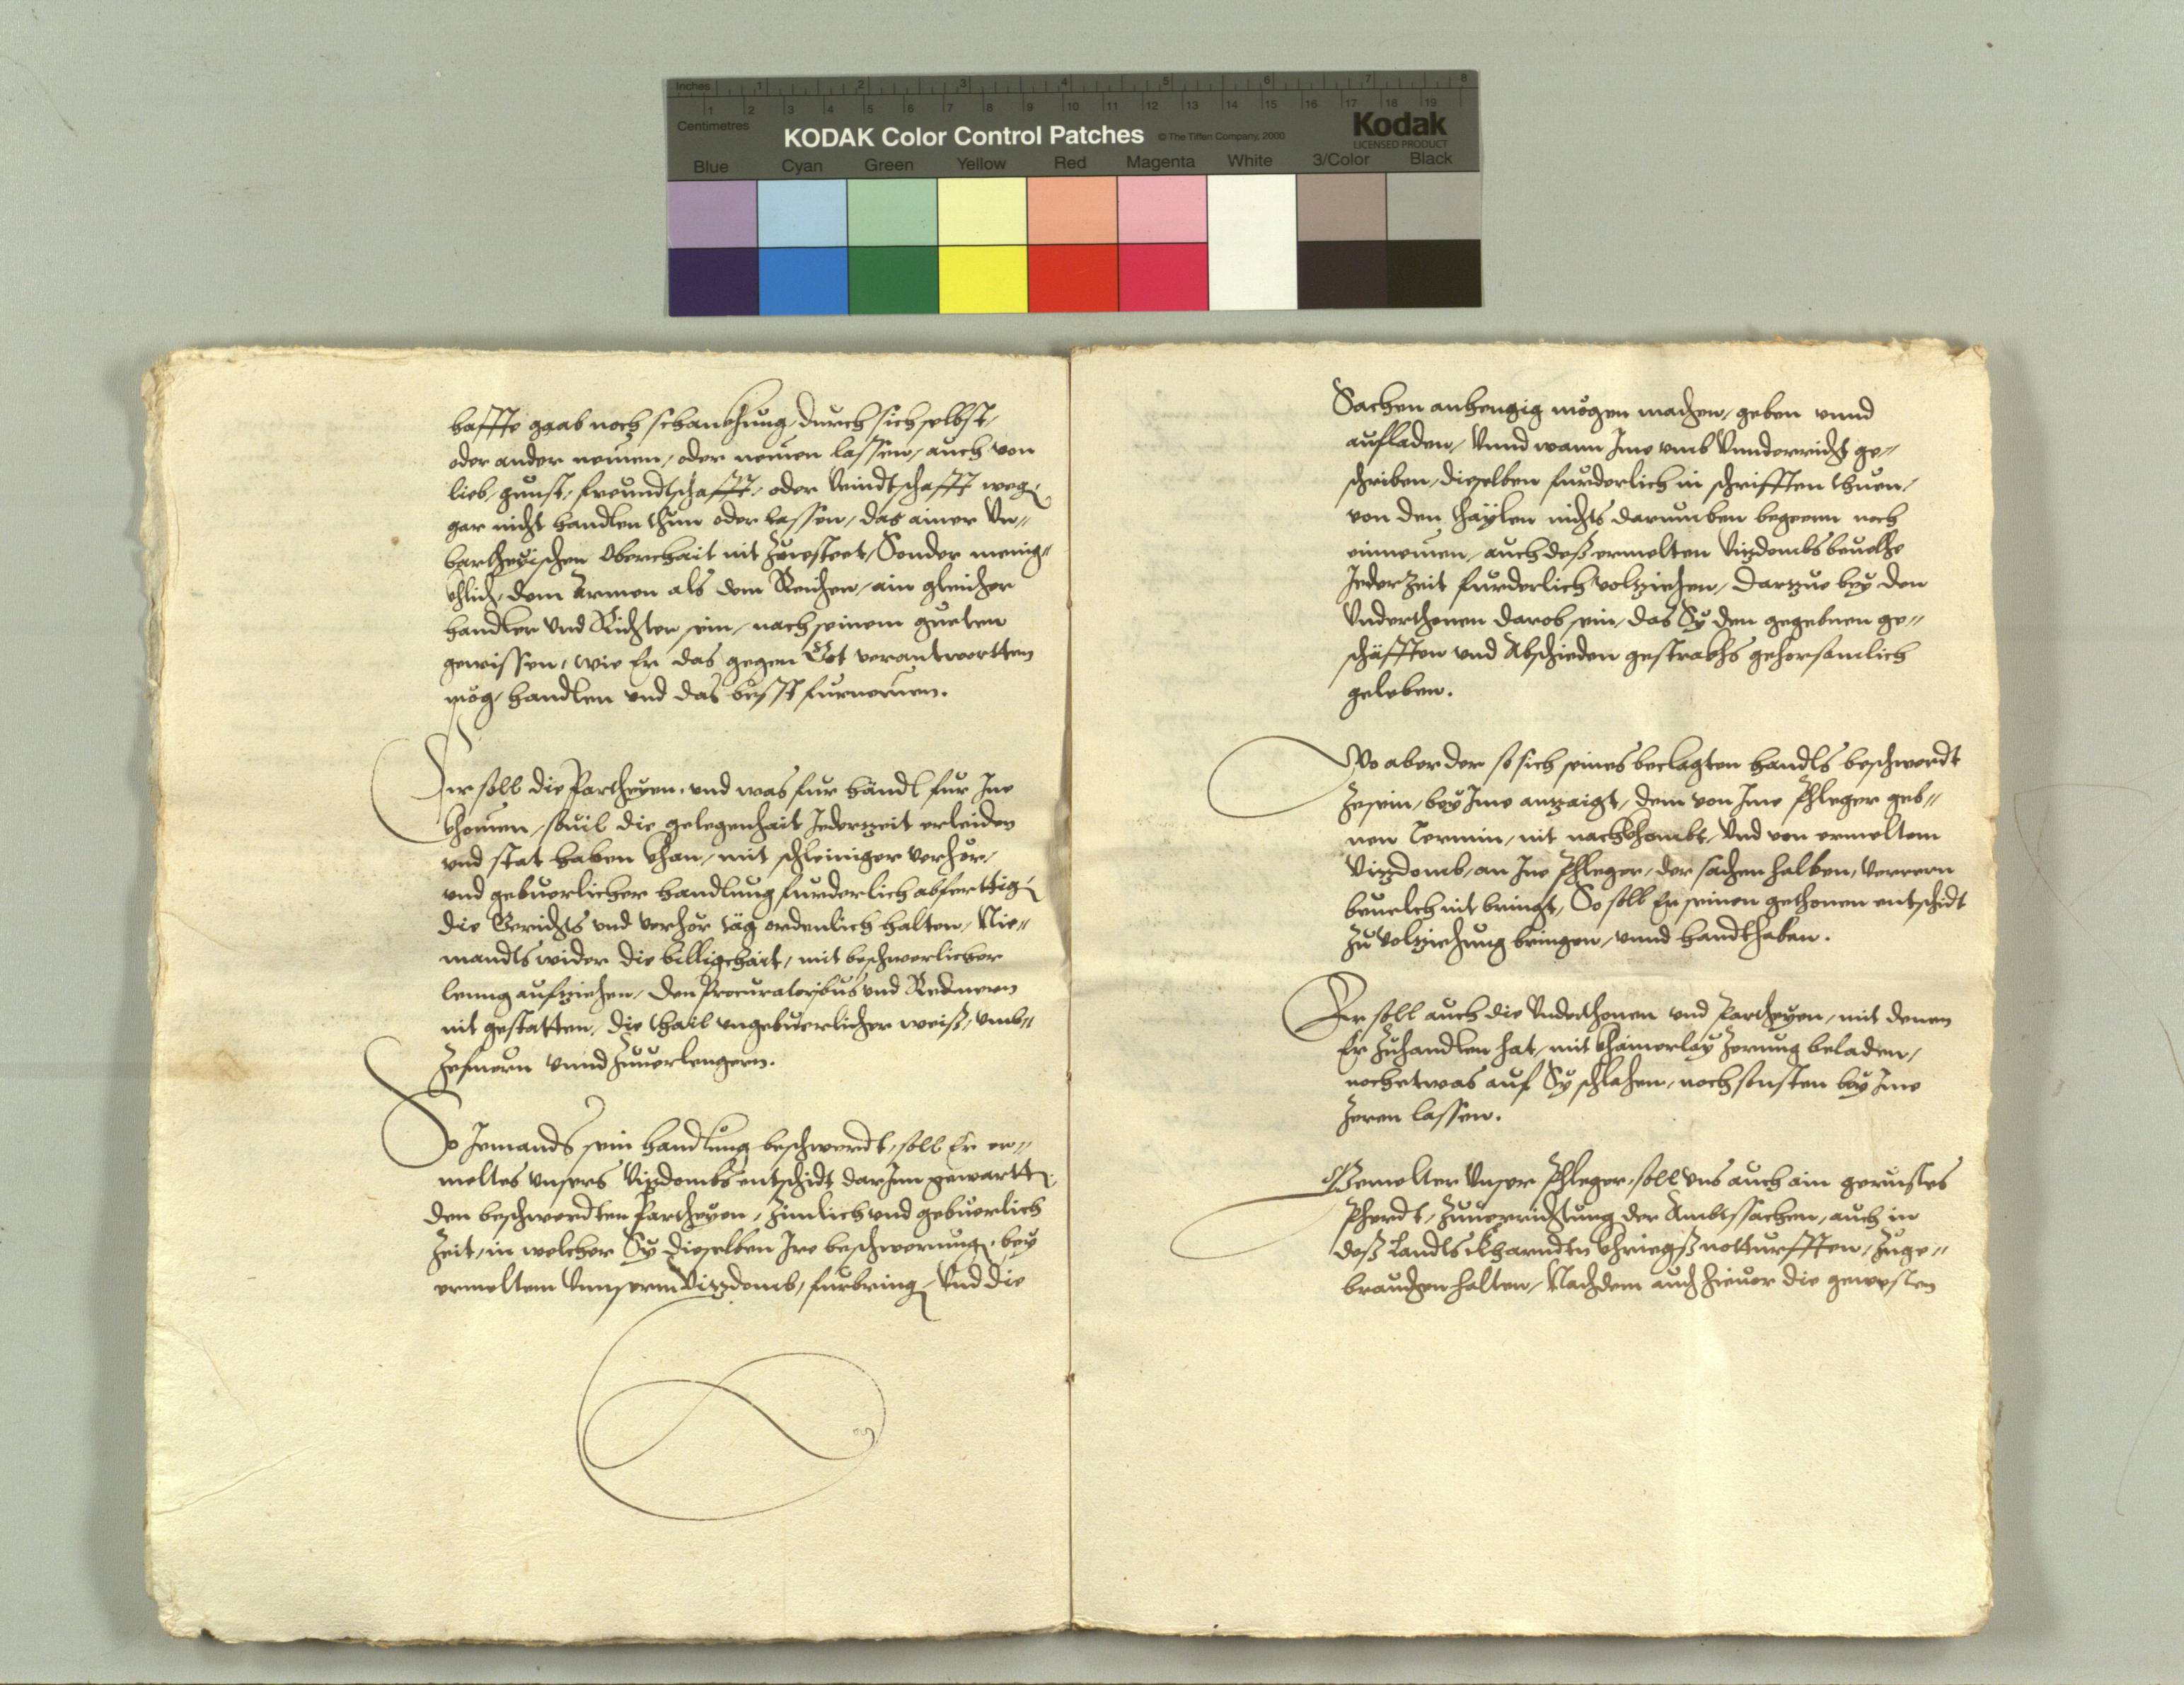 Inches 1 2 3 4 5 6 7 8
Centimetres 1 2 3 4 5 6 7 8 9 10 11 12 13 14 15 16 17 18 19
KODAK Color Control Patches © The Tiffen Company, 2000 Kodak
LICENSED PRODUCT
Blue Cyan Green Yellow Red Magenta White 3/Color Black
haffte gaab noch schankhung, durch sich selbst,
oder ander nemen, oder nemen lassen, auch von
lieb, gunst, freundtschafft, oder Veindtschafft weg
gar nicht handlen thun oder lassen, das ainer Vn⸗
partheyischen Oberchait nit zuesteet, Sonder menig⸗
chlich, dem Armen als dem Reichen, ain gleicher
handler Vnd Richter sein, nach seinem gueten
gewissen, wie Er das gegen Got verantwortten
mög, handlen vnd das besst furnemen.
Er soll die Partheyen, vnd was fur händl fur Ine
khomen, souil die gelegenhait Jederzeit erleiden
vnd stat haben khan, mit schleiniger verhör,
vnd gebuerlicher handlung furderlich abferttig
die Gerichts vnd verhör täg ordenlich halten, Nie⸗
mandts wider die billigchait, mit beschwerlicher
lenng aufziehen, den Procuratoribus vnd Rednern
nit gestatten, die thail vngebuerlicher weiß, vmb⸗
zefuern vnnd zuuerlengern.
So Jemands sein handlung beschwerdt, soll Er er⸗
meltes vnsers Vizdombs entschidt darInn gewartt
den beschwerdten Partheyen, zimlich vnd gebuerlich
zeit, in welcher Sy dieselben Ire beschwerung, bey
ermeltem Vnnserm Vizdomb, furbring, Vnd die
Sachen anhengig mögen machen, geben vnnd
aufladen, Vnnd wann Ime vmb Vnnderricht ge⸗
schriben, dieselben furderlich in schrifften thuen,
von den thaylen nichts darumben begeern noch
einnemen, auch deß ermelten Vizdombs beuelhe
Jederzeit furderlich volziehen, Darzue bey den
Vnderthonen darob sein, das Sy den gegebnen ge⸗
schäfften vnd Abschieden gestrakhs gehorsamlich
geleben.
Wo aber der so sich seines beclagten handls beschwerdt
zesein, bey Ime anzaigt, dem von Ime Phleger geb⸗
nen Termin, nit nachkhombt, Vnd von ermeltem
Vizdomb, an Ine Phleger, der sachen halben, verrern
beuelch nit bringt, So soll Er seinen gethonen entschidt
zu Volziehung bringen, vnnd handthaben.
Er soll auch die Vnderthonen vnd Partheyen, mit denen
Er zuhandlen hat, mit khainerlay zerung beladen,
noch etwas auf Sy schlahen, noch sonsten bey Ime
zeren lassen.
Gemelter Vnser Phleger, soll vns auch ain gerüstes
Pherdt, zuuerrichtung der Ambtssachen, auch in
deß Landts Kharndtn khriegßnotturfften, zuge⸗
brauchen halten, Nachdem auch hieuor die gewesten